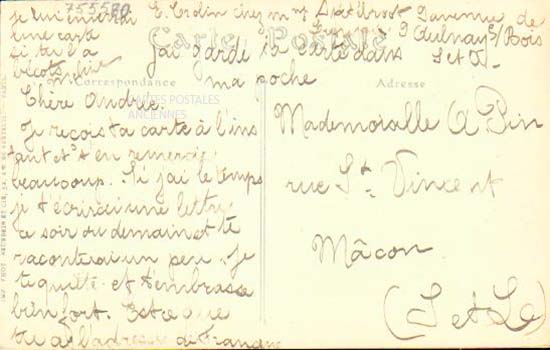 755580
je lui enverrai
une carte
si tu l'a
E. Cordin chez mme
3 avenue de
Aulnay s/ Bois
S et O
J'ai gardé ta carte dans
ma poche
Carte Postale
Correspondance
Adresse
CARTES POSTALES
ANCIENNES
Chère Andrée
Je reçois ta carte à l'ins
tant et t'en remercie
beaucoup. Si j'ai le temps
je t'écrirai une lettre
ce soir ou demain et te
raconterai un peu. Je
te quitte et t'embrasse
bien fort. Est ce que
tu as l'adresse de
Mademoiselle A Pin
rue St. Vincent
Mâcon
(S et L)